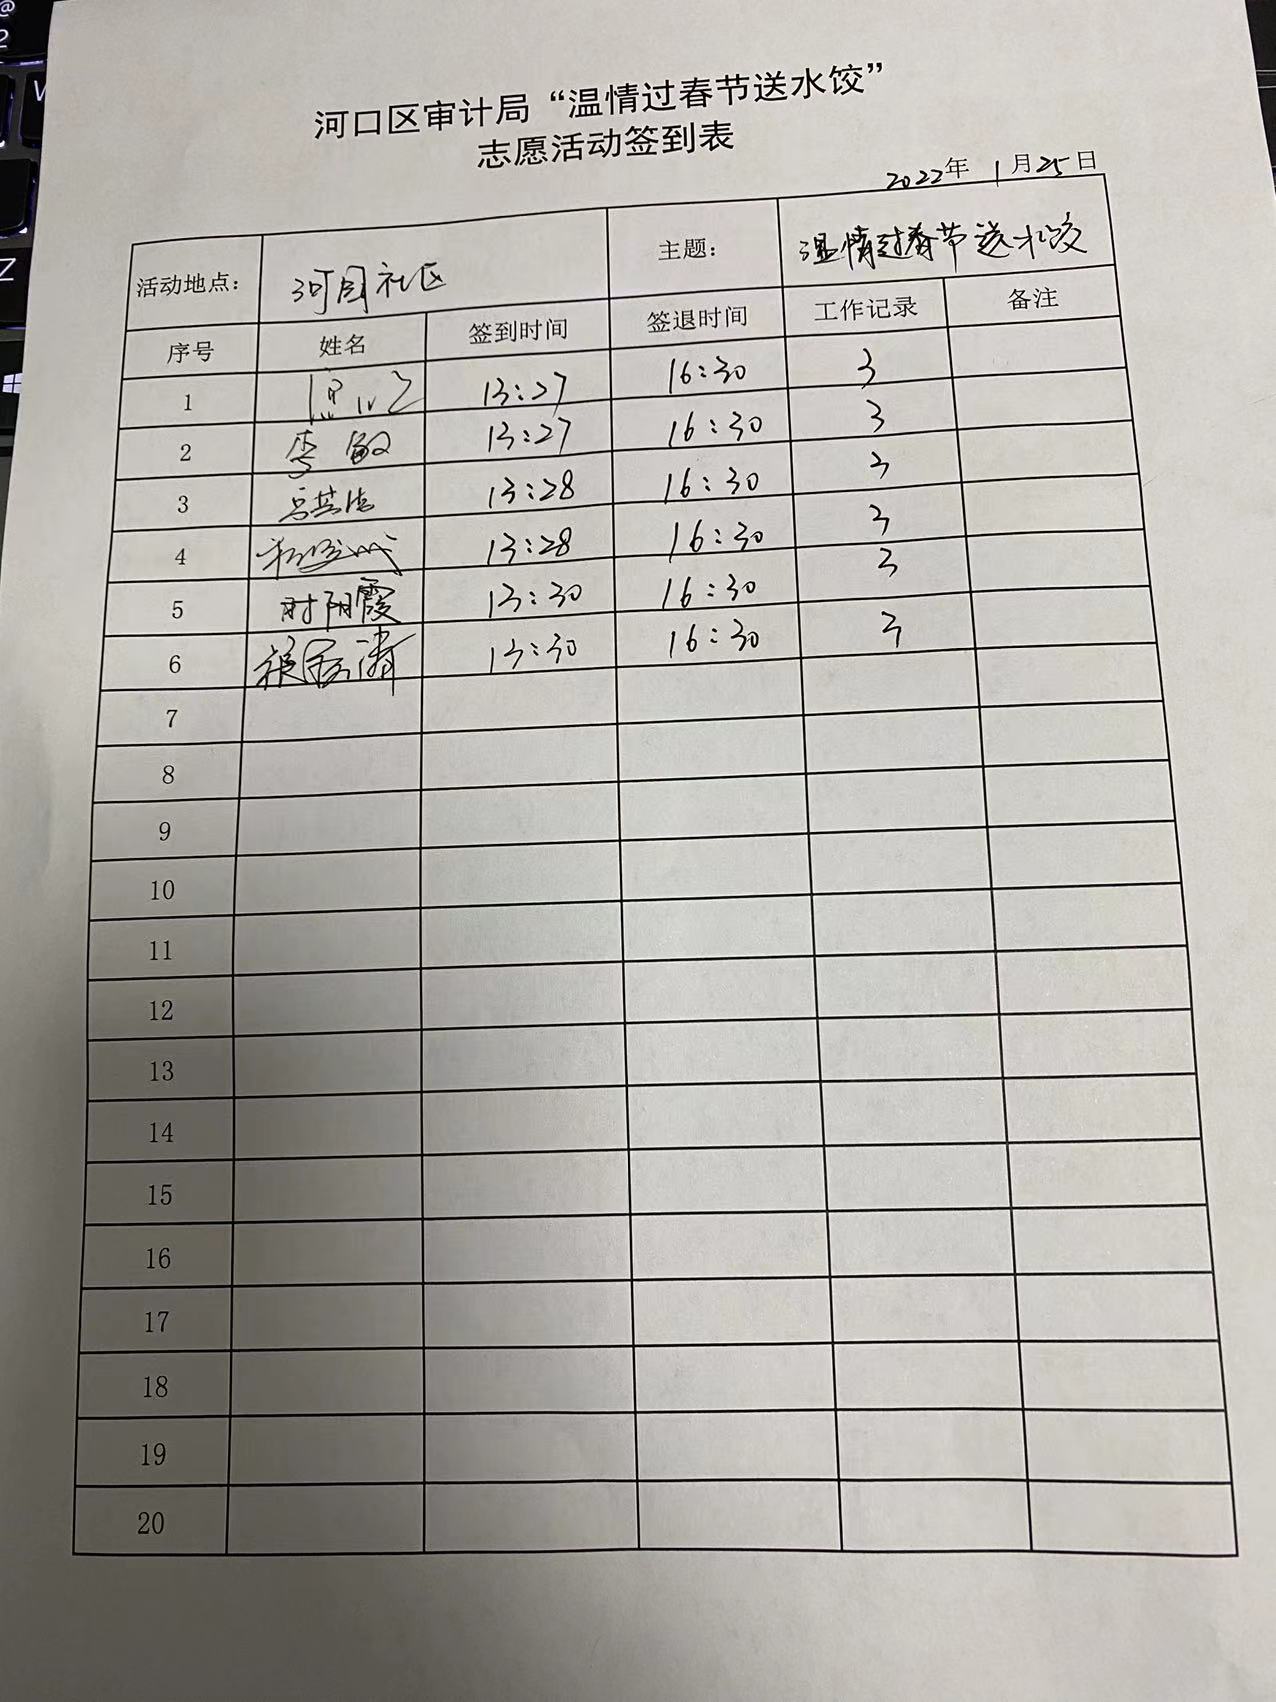 河口区审计局“温情过春节送水饺”
志愿活动签到表
2022年 1月25日
活动地点： 河园社区 主题： 温情过春节送水饺
序号 姓名 签到时间 签退时间 工作记录 备注
1 13:27 16:30 3
2 李敏 13:27 16:30 3
3 13:28 16:30 3
4 13:28 16:30 3
5 时阴霞 13:30 16:30 3
6 13:30 16:30 3
7
8
9
10
11
12
13
14
15
16
17
18
19
20